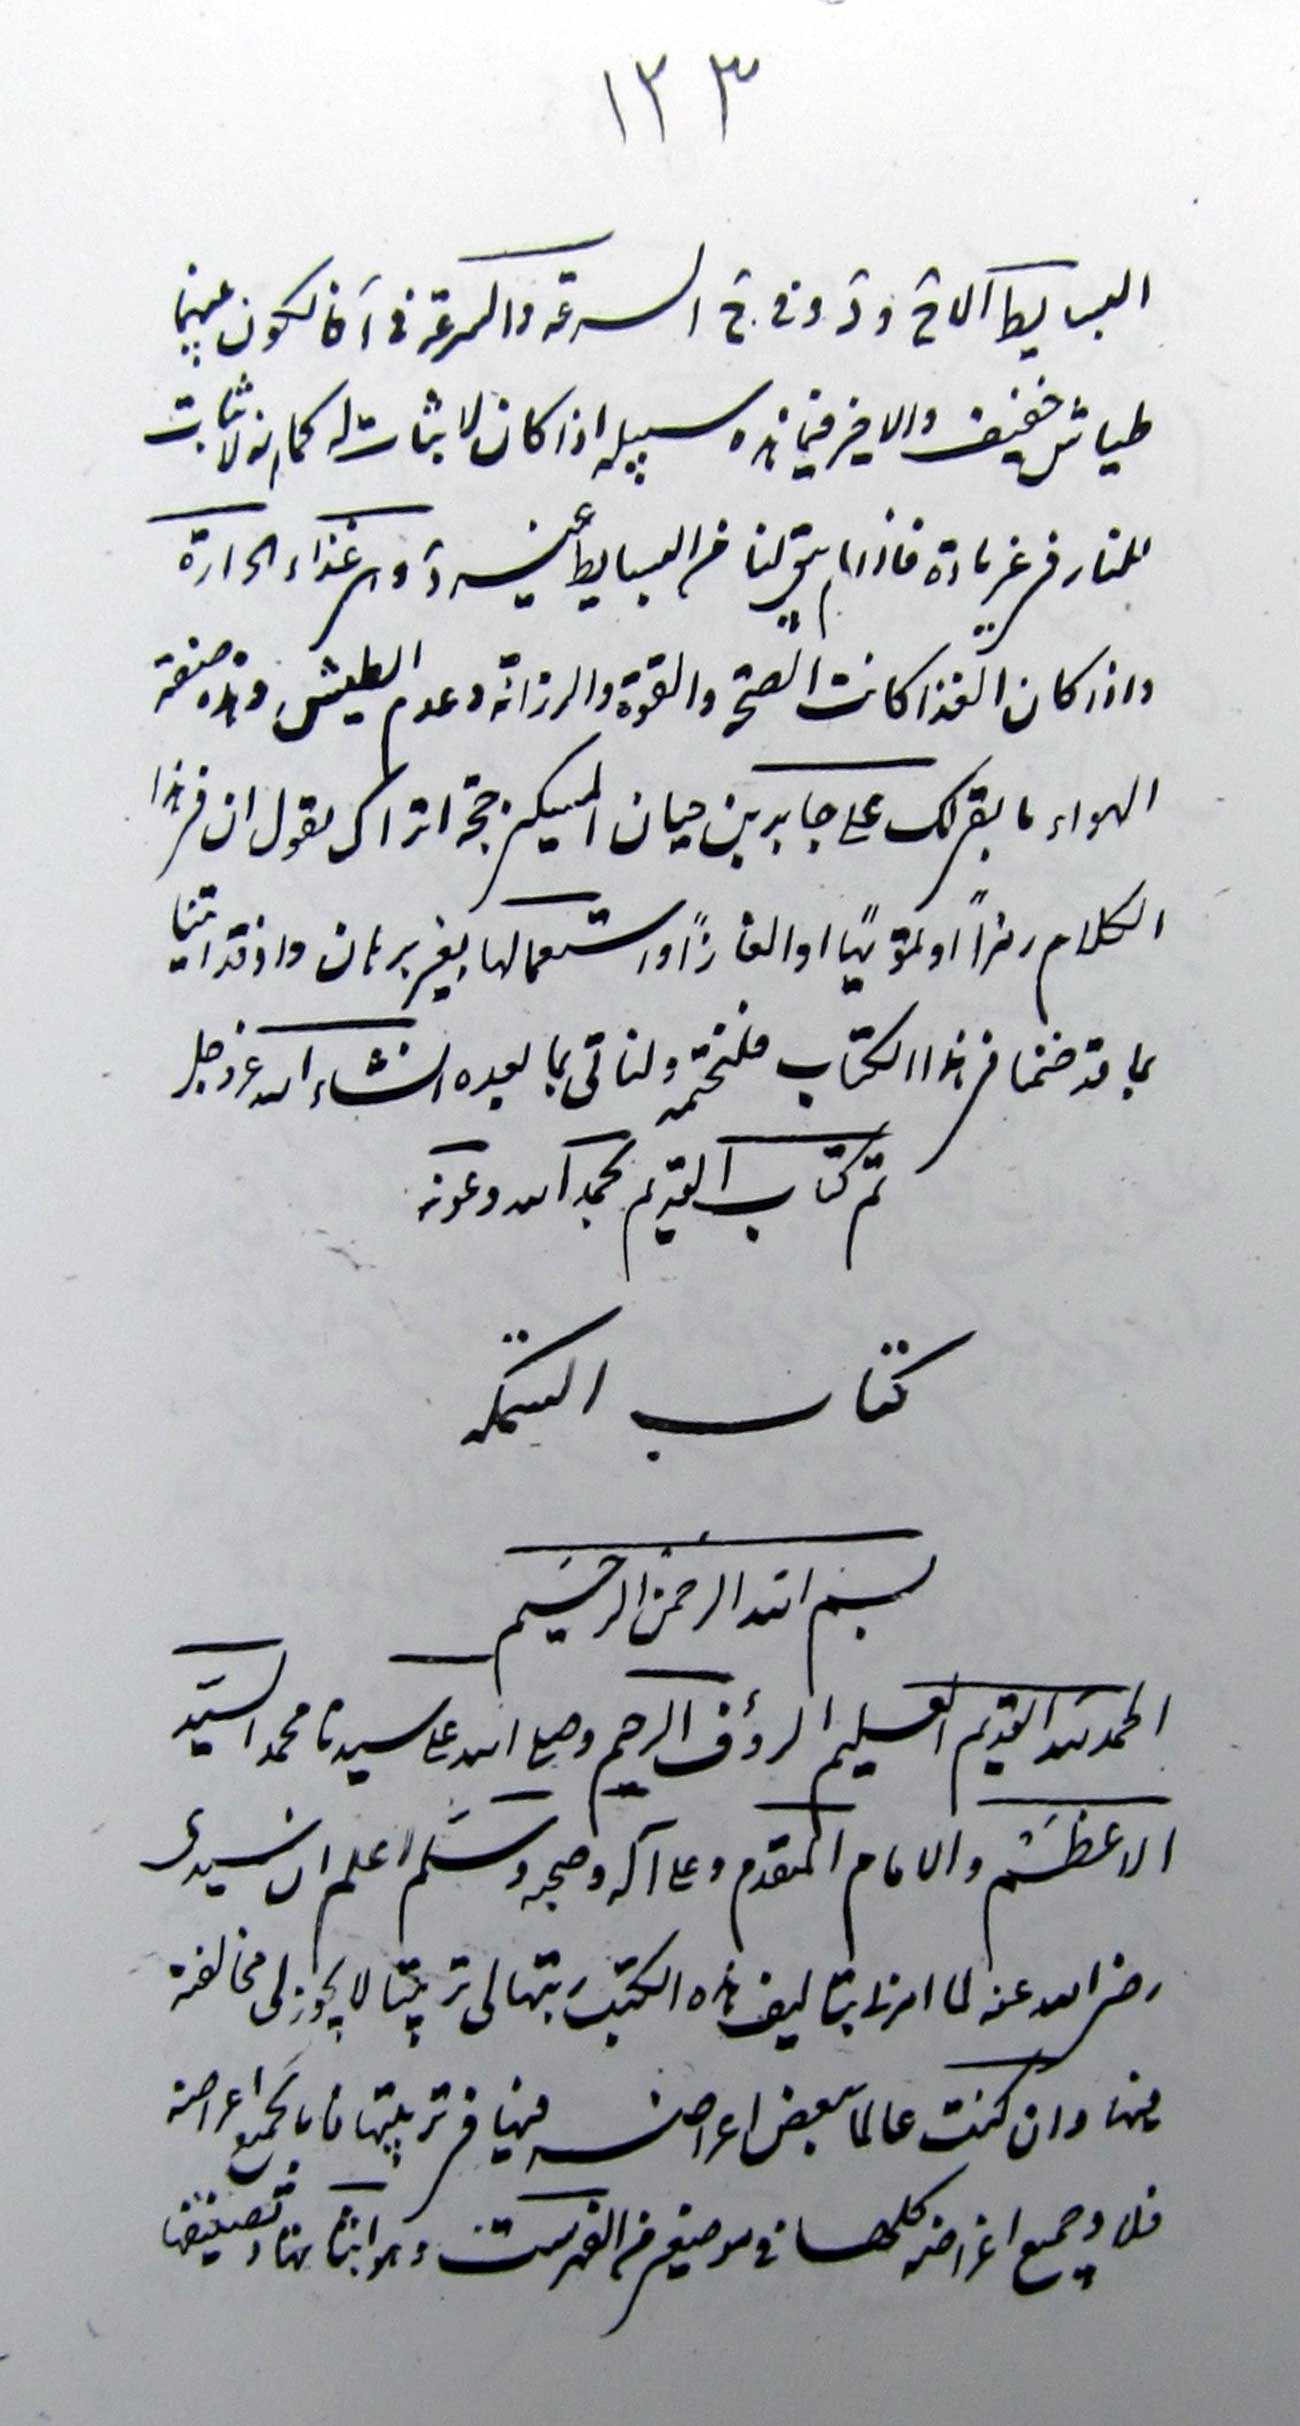 ١٢٣
البسايط الا ج و د و ج السرعه والسرعة في آن لكون
طياش خفيف والاخير فيما هذه سبيله اذا كان لا ثبات له كما انه لا ثبات
للنار في غير مادة فاذا لم يبق لنا من البسايط غير د و غذاء الحرارة
واذا كان الغذا كانت الصحة والقوة والرزانة وعدم الطيش وهذه صنعة
الهواء ما بقى لك على جابر بن حيان المسكين حجة اتراك تقول ان في هذا
الكلام رمزاً او تمويهًا او الغازًا واستعمالها بغير برهان واذ قد اتينا
بما قد ضمنا في هذا الكتاب فلنختمه ولناتى بما بعده انشاء الله عز وجل
تم كتاب القديم بحمد الله وعونه
كتاب
بسم الله الرحمن الرحيم
الحمد لله القديم العليم الرؤف الرحيم وصلى الله على سيدنا محمد السيد
الاعظم والامام المتقدم وعلى آله وصحبه وسلم اعلم ان سيدى
رضى الله عنه لما امرنا بتاليف هذه الكتب رتبها لى ترتيبًا لا يجوز لى مخالفته
فيها وان كنت عالما ببعض اغراضه فيها في ترتيبها فاما بجميع اغراضه
فلا وجميع اغراضه كلها في من الفهرست وهو وتصنيفها